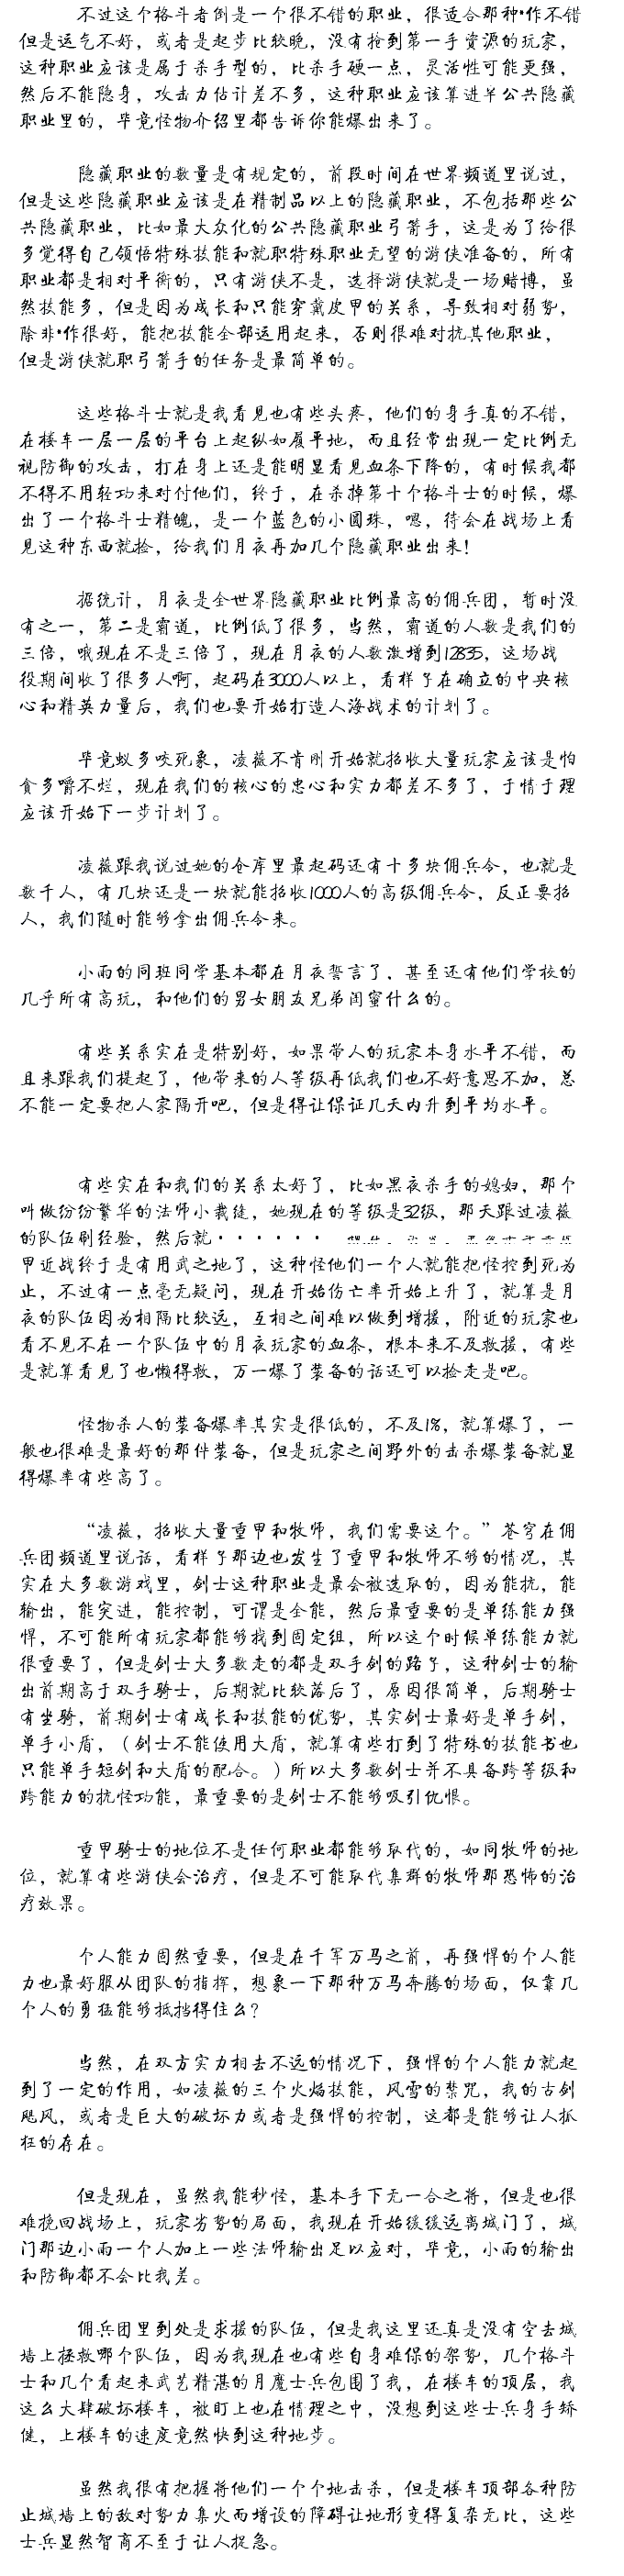 不过这个格斗者倒是一个很不错的职业，很适合那种*作不错
但是运气不好，或者是起步比较晚，没有抢到第一手资源的玩家，
这种职业应该是属于杀手型的，比杀手硬一点，灵活性可能更强，
然后不能隐身，攻击力估计差不多，这种职业应该算进半公共隐藏
职业里的，毕竟怪物介绍里都告诉你能爆出来了。
隐藏职业的数量是有规定的，前段时间在世界频道里说过，
但是这些隐藏职业应该是在精制品以上的隐藏职业，不包括那些公
共隐藏职业，比如最大众化的公共隐藏职业弓箭手，这是为了给很
多觉得自己领悟特殊技能和就职特殊职业无望的游侠准备的，所有
职业都是相对平衡的，只有游侠不是，选择游侠就是一场赌博，虽
然技能多，但是因为成长和只能穿戴皮甲的关系，导致相对弱势，
除非*作很好，能把技能全部运用起来，否则很难对抗其他职业，
但是游侠就职弓箭手的任务是最简单的。
这些格斗士就是我看见也有些头疼，他们的身手真的不错，
在楼车一层一层的平台上起纵如履平地，而且经常出现一定比例无
视防御的攻击，打在身上还是能明显看见血条下降的，有时候我都
不得不用轻功来对付他们，终于，在杀掉第十个格斗士的时候，爆
出了一个格斗士精魄，是一个蓝色的小圆珠，嗯，待会在战场上看
见这种东西就捡，给我们月夜再加几个隐藏职业出来！
据统计，月夜是全世界隐藏职业比例最高的佣兵团，暂时没
有之一，第二是霸道，比例低了很多，当然，霸道的人数是我们的
三倍，哦现在不是三倍了，现在月夜的人数激增到12835，这场战
役期间收了很多人啊，起码在3000人以上，看样子在确立的中央核
心和精英力量后，我们也要开始打造人海战术的计划了。
毕竟蚁多咬死象，凌薇不肯刚开始就招收大量玩家应该是怕
贪多嚼不烂，现在我们的核心的忠心和实力都差不多了，于情于理
应该开始下一步计划了。
凌薇跟我说过她的仓库里最起码还有十多块佣兵令，也就是
数千人，有几块还是一块就能招收1000人的高级佣兵令，反正要招
人，我们随时能够拿出佣兵令来。
小雨的同班同学基本都在月夜誓言了，甚至还有他们学校的
几乎所有高玩，和他们的男女朋友兄弟闺蜜什么的。
有些关系实在是特别好，如果带人的玩家本身水平不错，而
且来跟我们提起了，他带来的人等级再低我们也不好意思不加，总
不能一定要把人家隔开吧，但是得让保证几天内升到平均水平。
有些实在和我们的关系太好了，比如黑夜杀手的媳妇，那个
叫做纷纷繁华的法师小裁缝，她现在的等级是32级，那天跟过凌薇
的队伍刷经验，然后就······
甲近战终于是有用武之地了，这种怪他们一个人就能把怪控到死为
止，不过有一点毫无疑问，现在开始伤亡率开始上升了，就算是月
夜的队伍因为相隔比较远，互相之间难以做到增援，附近的玩家也
看不见不在一个队伍中的月夜玩家的血条，根本来不及救援，有些
是就算看见了也懒得救，万一爆了装备的话还可以捡走是吧。
怪物杀人的装备爆率其实是很低的，不及1%，就算爆了，一
般也很难是最好的那件装备，但是玩家之间野外的击杀爆装备就显
得爆率有些高了。
“凌薇，招收大量重甲和牧师，我们需要这个。”苍穹在佣
兵团频道里说话，看样子那边也发生了重甲和牧师不够的情况，其
实在大多数游戏里，剑士这种职业是最会被选取的，因为能抗，能
输出，能突进，能控制，可谓是全能，然后最重要的是单练能力强
悍，不可能所有玩家都能够找到固定组，所以这个时候单练能力就
很重要了，但是剑士大多数走的都是双手剑的路子，这种剑士的输
出前期高于双手骑士，后期就比较落后了，原因很简单，后期骑士
有坐骑，前期剑士有成长和技能的优势，其实剑士最好是单手剑，
单手小盾，（剑士不能使用大盾，就算有些打到了特殊的技能书也
只能单手短剑和大盾的配合。）所以大多数剑士并不具备跨等级和
跨能力的抗怪功能，最重要的是剑士不能够吸引仇恨。
重甲骑士的地位不是任何职业都能够取代的，如同牧师的地
位，就算有些游侠会治疗，但是不可能取代集群的牧师那恐怖的治
疗效果。
个人能力固然重要，但是在千军万马之前，再强悍的个人能
力也最好服从团队的指挥，想象一下那种万马奔腾的场面，仅靠几
个人的勇猛能够抵挡得住么？
当然，在双方实力相去不远的情况下，强悍的个人能力就起
到了一定的作用，如凌薇的三个火焰技能，风雪的禁咒，我的古剑
飓风，或者是巨大的破坏力或者是强悍的控制，这都是能够让人抓
狂的存在。
但是现在，虽然我能秒怪，基本手下无一合之将，但是也很
难挽回战场上，玩家劣势的局面，我现在开始缓缓远离城门了，城
门那边小雨一个人加上一些法师输出足以应对，毕竟，小雨的输出
和防御都不会比我差。
佣兵团里到处是求援的队伍，但是我这里还真是没有空去城
墙上拯救哪个队伍，因为我现在也有些自身难保的架势，几个格斗
士和几个看起来武艺精湛的月魔士兵包围了我，在楼车的顶层，我
这么大肆破坏楼车，被盯上也在情理之中，没想到这些士兵身手矫
健，上楼车的速度竟然快到这种地步。
虽然我很有把握将他们一个个地击杀，但是楼车顶部各种防
止城墙上的敌对势力集火而增设的障碍让地形变得复杂无比，这些
士兵显然智商不至于让人捉急。